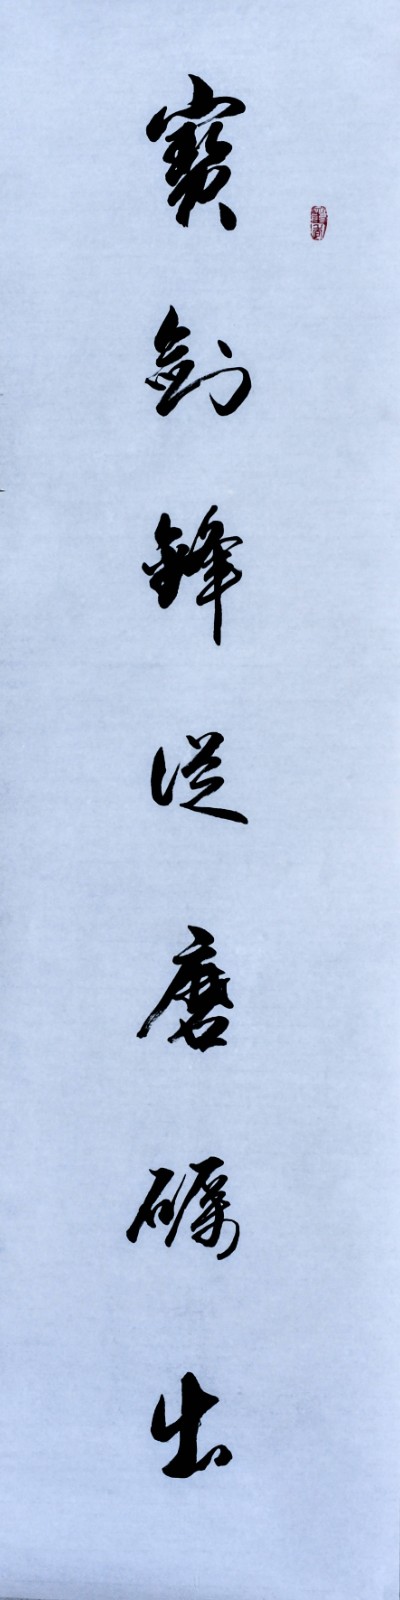 寶劍鋒從磨礪出